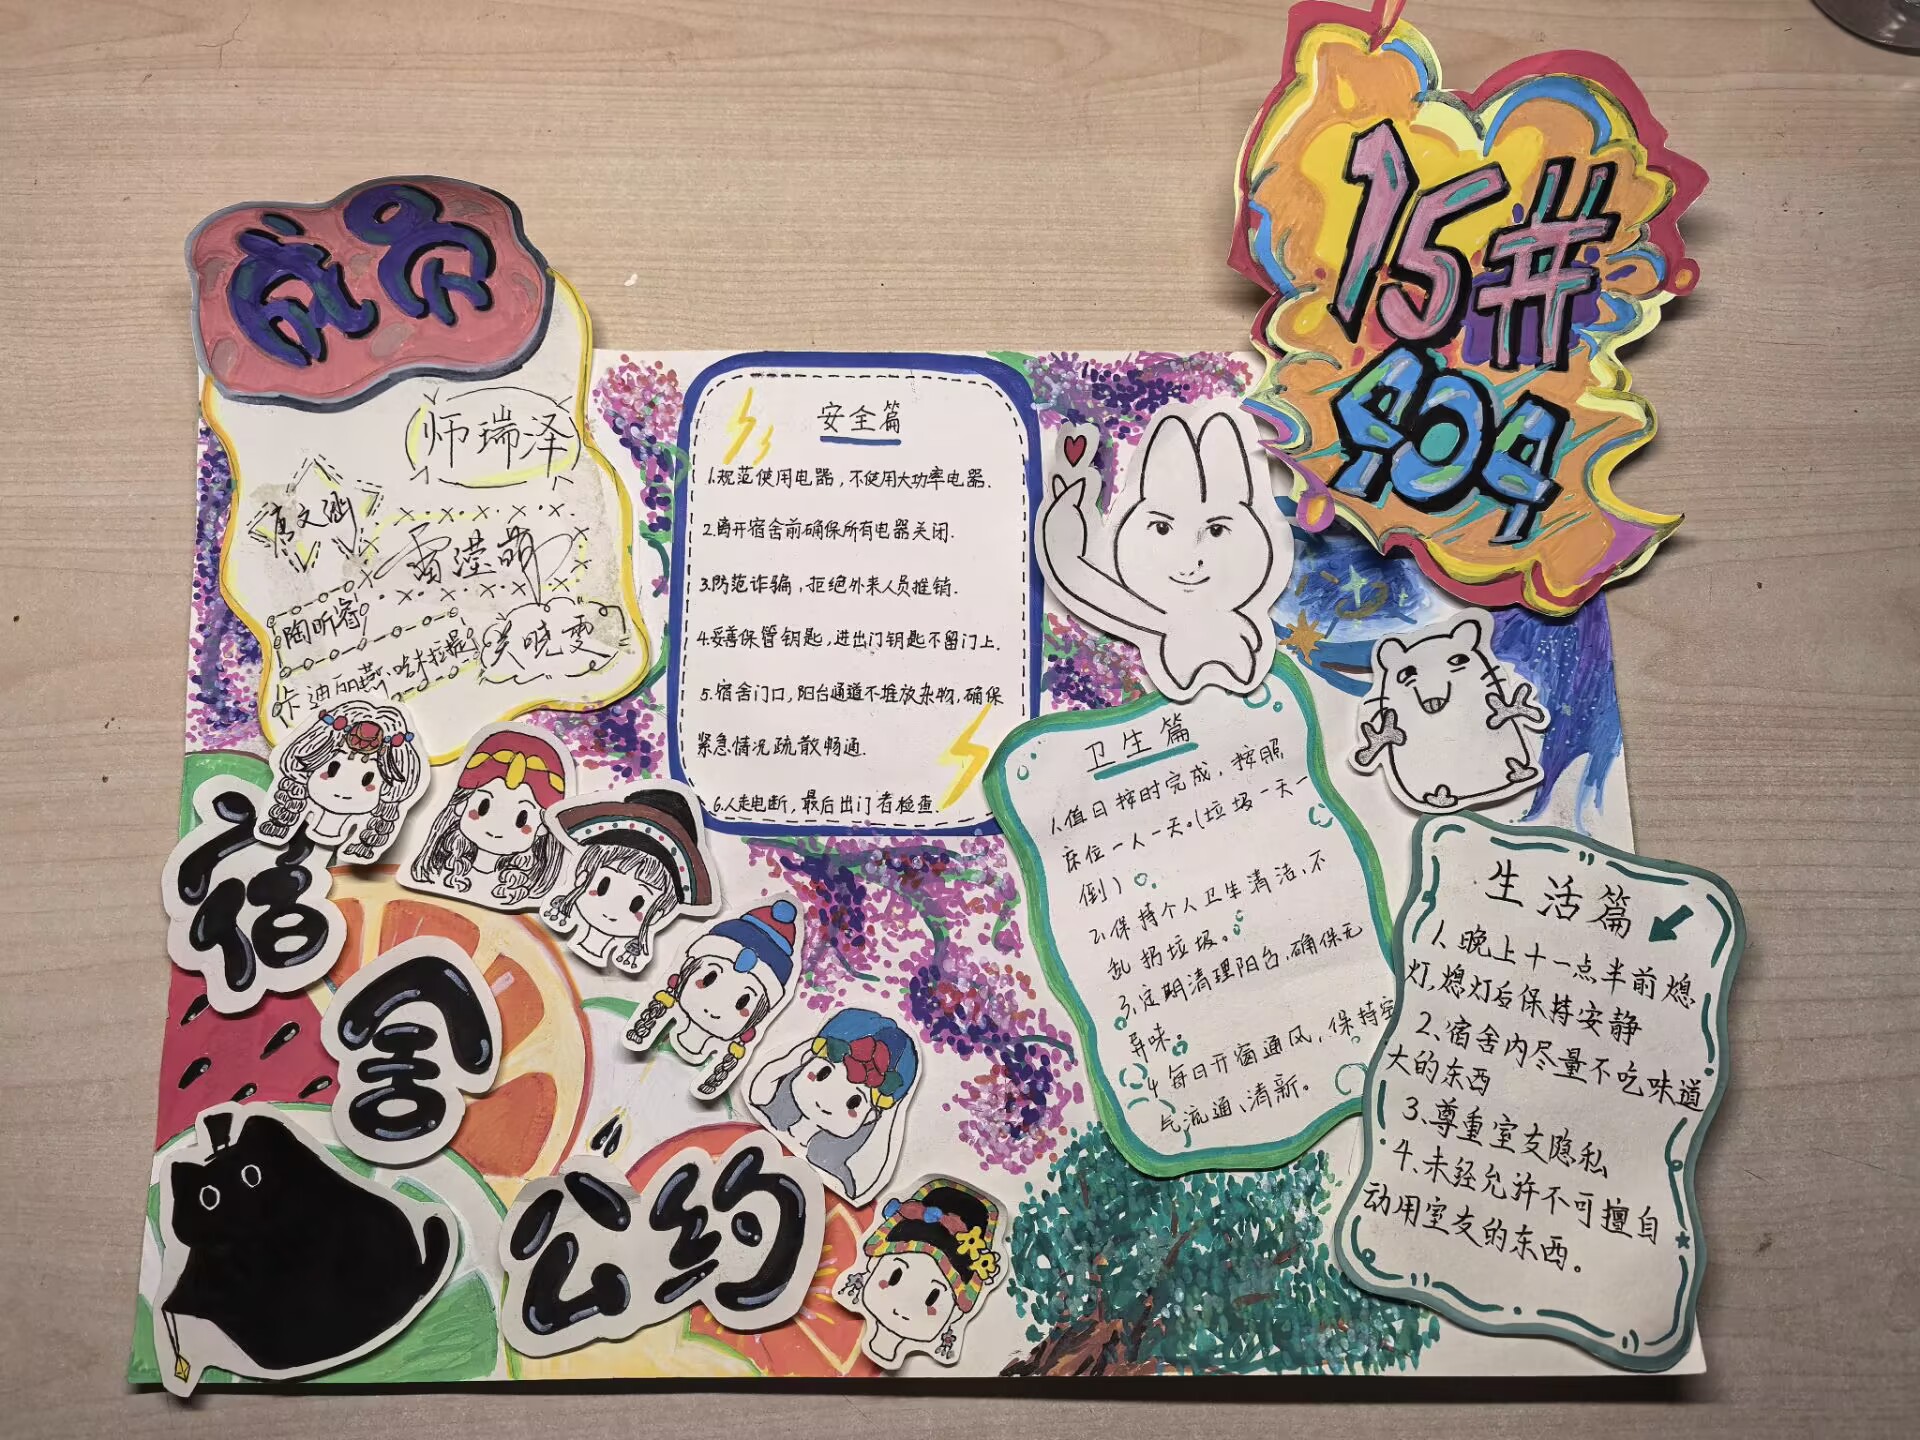 15#
909
成员
师瑞泽
唐文涵
雷滢萌
陶昕睿
吴晓雯
安全篇
1.规范使用电器，不使用大功率电器.
2.离开宿舍前确保所有电器关闭.
3.防范诈骗，拒绝外来人员推销.
4.妥善保管钥匙，进出门钥匙不留门上.
5.宿舍门口，阳台通道不堆放杂物，确保
紧急情况疏散畅通.
6.人走电断，最后出门者检查.
卫生篇
1.值日按时完成，按照
床位一人一天。(垃圾一天一
倒)
2.保持个人卫生清洁、不
乱扔垃圾。
3.定期清理阳台，确保无
异味。
4.每日开窗通风，保持空
气流通、清新。
生活篇
1、晚上十一点半前熄
灯，熄灯后保持安静
2、宿舍内尽量不吃味道
大的东西
3、尊重室友隐私
4、未经允许不可擅自
动用室友的东西。
宿舍公约